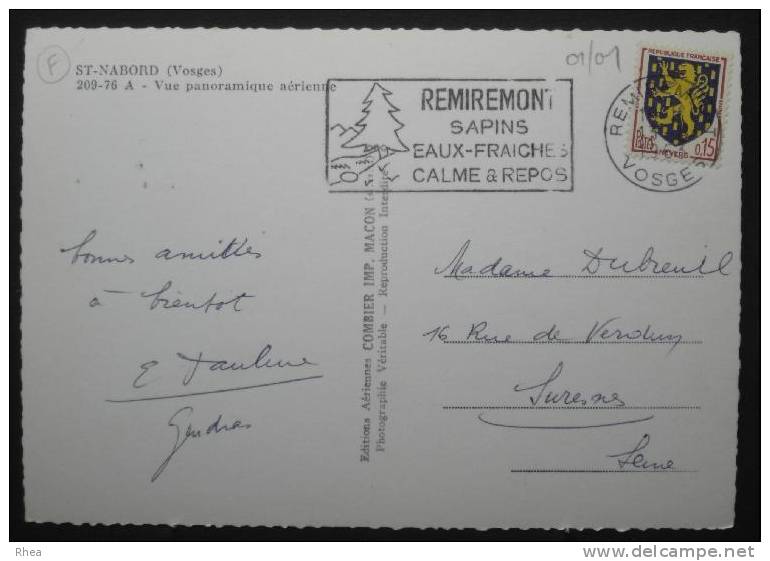 F
01/01
ST-NABORD (Vosges)
209-76 A - Vue panoramique aérienne
REMIREMONT
SAPINS
EAUX-FRAICHES
CALME & REPOS
REPUBLIQUE FRANCAISE
POSTES
0,15
NEVERS
VOSGES
Editions Aériennes COMBIER IMP. MACON
Photographie Véritable — Reproduction Interdite
bonnes amitiés
à bientot
E Pauline
Gendras
Madame Dubreuil
16 Rue de Verdun
Suresnes
Seine
Rhea
www.delcampe.net